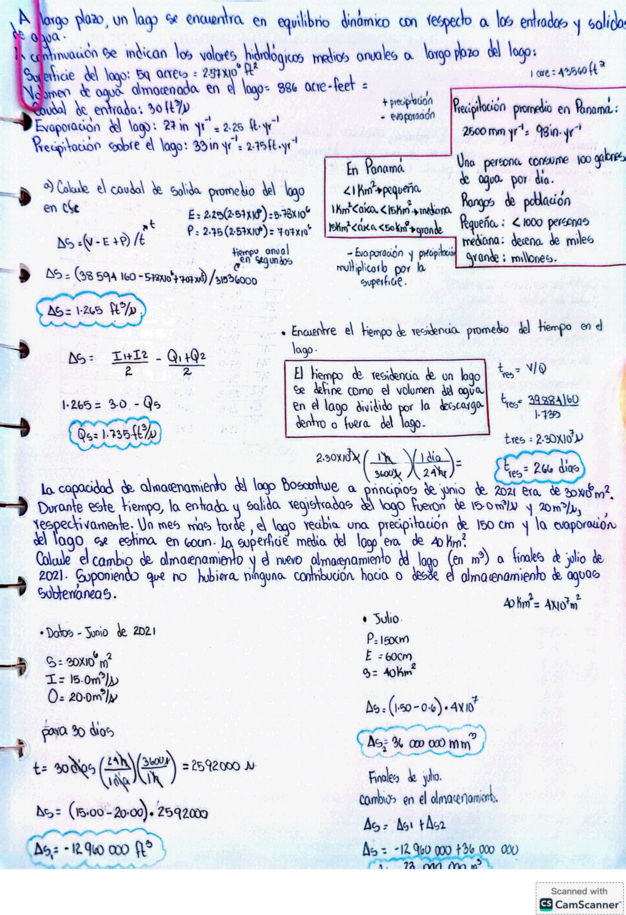 A largo plazo, un lago se encuentra en equilibrio dinámico con respecto a las entradas y salidas
de agua.
A continuación se indican los valores hidrológicos medios anuales a largo plazo del lago:
Superficie del lago: 59 acres = 2.57x10⁶ ft²
1 acre = 43560 ft²
Volumen de agua almacenada en el lago = 886 acre-feet =
Caudal de entrada: 30 ft³/s
Evaporación del lago: 27 in yr⁻¹ = 2.25 ft·yr⁻¹
Precipitación sobre el lago: 33 in yr⁻¹ = 2.75 ft·yr⁻¹
+ precipitación
- evaporación
Precipitación promedio en Panamá:
2500 mm yr⁻¹ = 98 in·yr⁻¹
Una persona consume 100 galones
de agua por día.
Rangos de población
Pequeña: <1000 personas
mediana: decena de miles
grande: millones.
En Panamá
<1 Km² → pequeña
1Km² < área < 15Km² → mediana
15Km² < área < 50Km² → grande
- Evaporación y precipitación
multiplicarlo por la
superficie.
a) Calcule el caudal de salida promedio del lago
en cfs
E = 2.25(2.57x10⁶) = 5.78x10⁶
P = 2.75(2.57x10⁶) = 7.07x10⁶
ΔS = (V - E + P) / t
tiempo anual
en segundos
ΔS = (38 594 160 - 5.78x10⁶ + 7.07x10⁶) / 31536000
ΔS = 1.265 ft³/s
ΔS = I1+I2 / 2 - Q1+Q2 / 2
1.265 = 3.0 - Qs
Qs = 1.735 ft³/s
• Encuentre el tiempo de residencia promedio del tiempo en el
lago.
El tiempo de residencia de un lago
se define como el volumen del agua
en el lago dividido por la descarga
dentro o fuera del lago.
tres = V/Q
tres = 39884160 / 1.735
tres = 2.30x10⁷ s
2.30x10⁷ s (1h / 3600s)(1 día / 24 hr) =
tres = 266 días
La capacidad de almacenamiento del lago Bosomtwe a principios de junio de 2021 era de 30x10⁶ m².
Durante este tiempo, la entrada y salida registradas del lago fueron de 15.0 m³/s y 20 m³/s,
respectivamente. Un mes mas tarde, el lago recibia una precipitación de 150 cm y la evaporación
del lago se estima en 60cm. La superficie media del lago era de 40 Km².
Calcule el cambio de almacenamiento y el nuevo almacenamiento del lago (en m³) a finales de julio de
2021. Suponiendo que no hubiera ninguna contribución hacia o desde el almacenamiento de aguas
subterráneas.
40 Km² = 4x10⁷ m²
• Datos - Junio de 2021
S = 30x10⁶ m²
I = 15.0 m³/s
O = 20.0 m³/s
para 30 días
t = 30 días (24h / 1día)(3600s / 1h) = 2592000 s
ΔS = (15.00 - 20.00) · 2592000
ΔS₁ = -12 960 000 ft³
• Julio
P = 150cm
E = 60cm
S = 40 Km²
ΔS = (1.50 - 0.6) · 4x10⁷
ΔS₂ = 36 000 000 mm³
Finales de julio.
cambios en el almacenamiento.
ΔS = ΔS1 + ΔS2
ΔS = -12 960 000 + 36 000 000
Scanned with
CS CamScanner